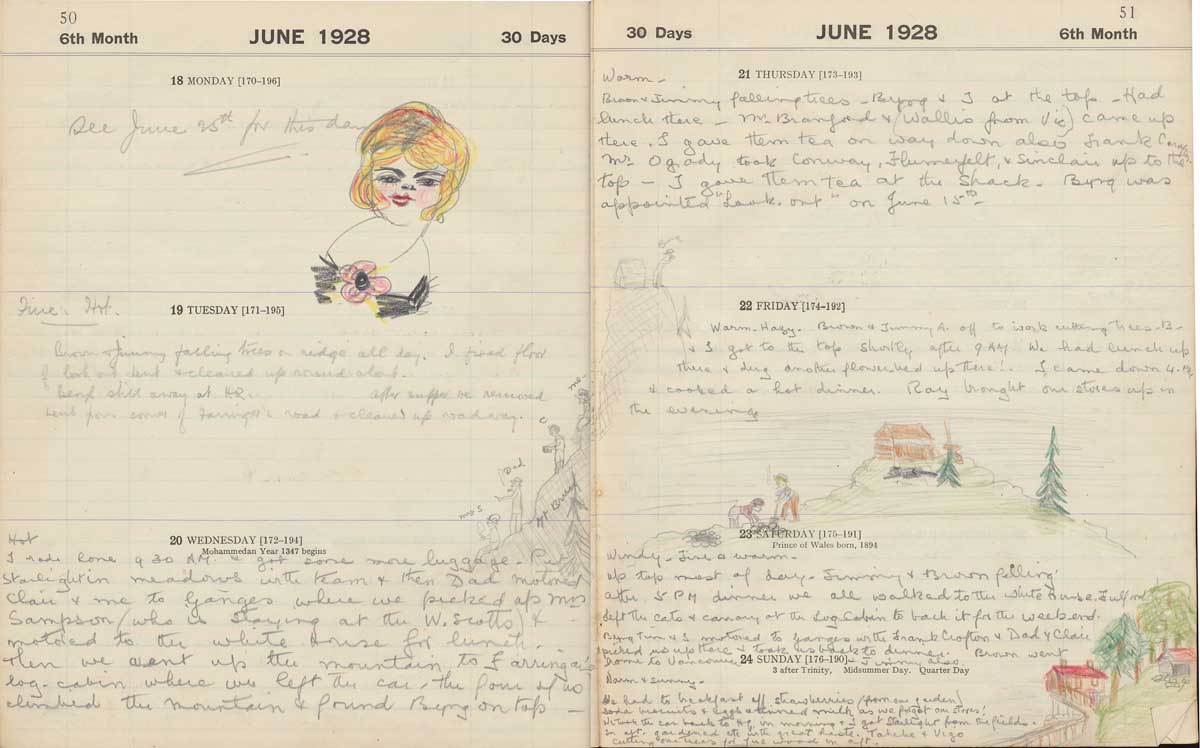 50
6th Month
JUNE 1928
30 Days
18 MONDAY [170–196]
See June 25th for this day
19 TUESDAY [171–195]
Fine. Hot.
Brown & Jimmy falling trees on ridge all day. I fixed floor
of look out tent & cleaned up round about.
after supper we removed
tent from corner of road & cleaned up roadway.
C
Dad
Mrs S
Mt Bruce
me
20 WEDNESDAY [172–194]
Mohammedan Year 1347 begins
Hot
I rode home 9.30 AM. & got some more luggage. Put
Starlight in meadows with team & then Dad motored
Clair & me to Ganges where we picked up Mrs
Sampson (who is staying at the W. Scotts) &
motored to the white House for lunch.
Then we went up the mountain to Farringa's
log-cabin where we left the car, the four of us
climbed the mountain & found Byrg on top –
51
30 Days
JUNE 1928
6th Month
21 THURSDAY [173–193]
Warm –
Brown & Jimmy falling trees – Byrg & I at the top – Had
lunch there – Mr Branford & (Wallis from Vic) came up
there. I gave them tea on way down also Frank
Mr Ogrady took Conway, Flumerfelt, & Sinclair up to the
top – I gave them tea at the Shack. Byrg was
appointed "Look. out" on June 15th –
22 FRIDAY [174–192]
Warm – Hazy. Brown & Jimmy A. off to work cutting trees – B –
& I got to the top shortly after 9 AM. We had lunch up
there & dug another flower bed up there! I came down 4.
& cooked a hot dinner. Ray brought our stores up in
the evening
23 SATURDAY [175–191]
Prince of Wales born, 1894
Windy – Fine & warm –
up top most of day – Jimmy & Brown falling
after 5 PM dinner we all walked to the white House.
left the cats & canary at the Log Cabin to back it for the weekend.
Byrg & I motored to Ganges with Frank Crofton & Dad & Clair
picked us up there & took us back to dinner. Brown went
home to Vancouver Jimmy also.
24 SUNDAY [176–190]
3 after Trinity, Midsummer Day. Quarter Day
Warm & sunny.
We had to breakfast off strawberries (from our garden)
some biscuits & eggs & tinned milk as we forgot our stores!
took the car back to HQ in morning & I got Starlight from the fields.
In aft. gardened etc with great haste. Takeke & Vigo
cutting our trees for fire wood in aft.